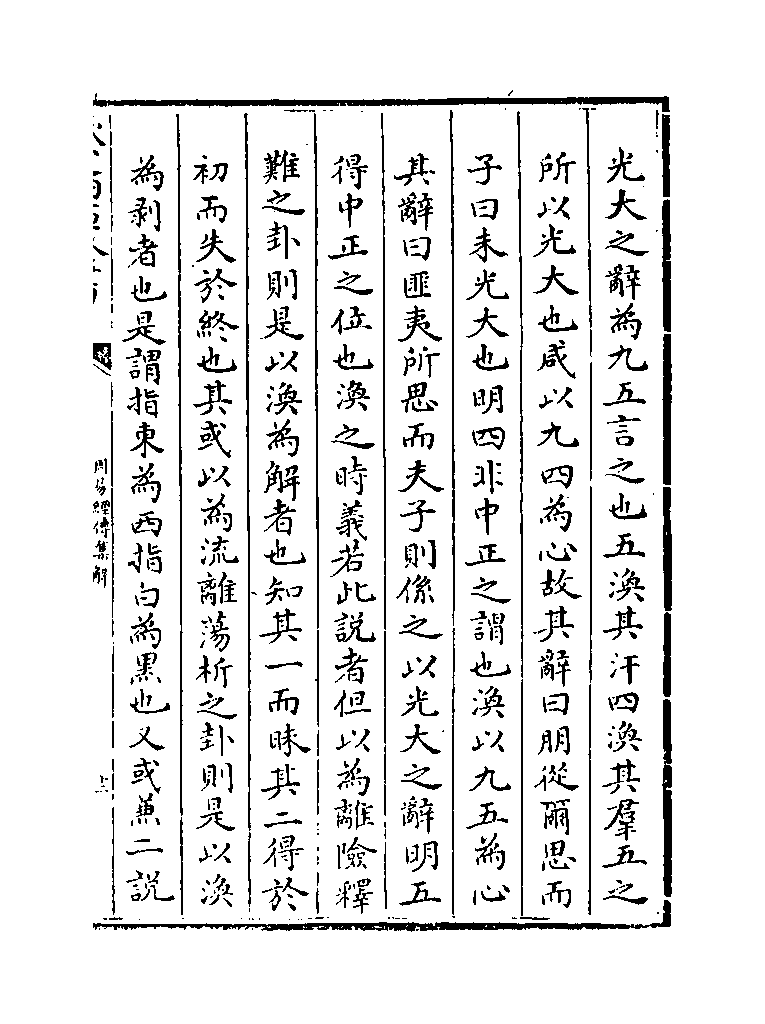 光大之辭為九五言之也五渙其汗四渙其羣五之
所以光大也咸以九四為心故其辭曰朋從爾思而
子曰未光大也明四非中正之謂也渙以九五為心
其辭曰匪夷所思而夫子則係之以光大之辭明五
得中正之位也渙之時義若此説者但以為離險釋
難之卦則是以渙為解者也知其一而昧其二得於
初而失於終也其或以為流離蕩析之卦則是以渙
為剥者也是謂指東為西指白為黒也又或兼二説
周易經傳集解